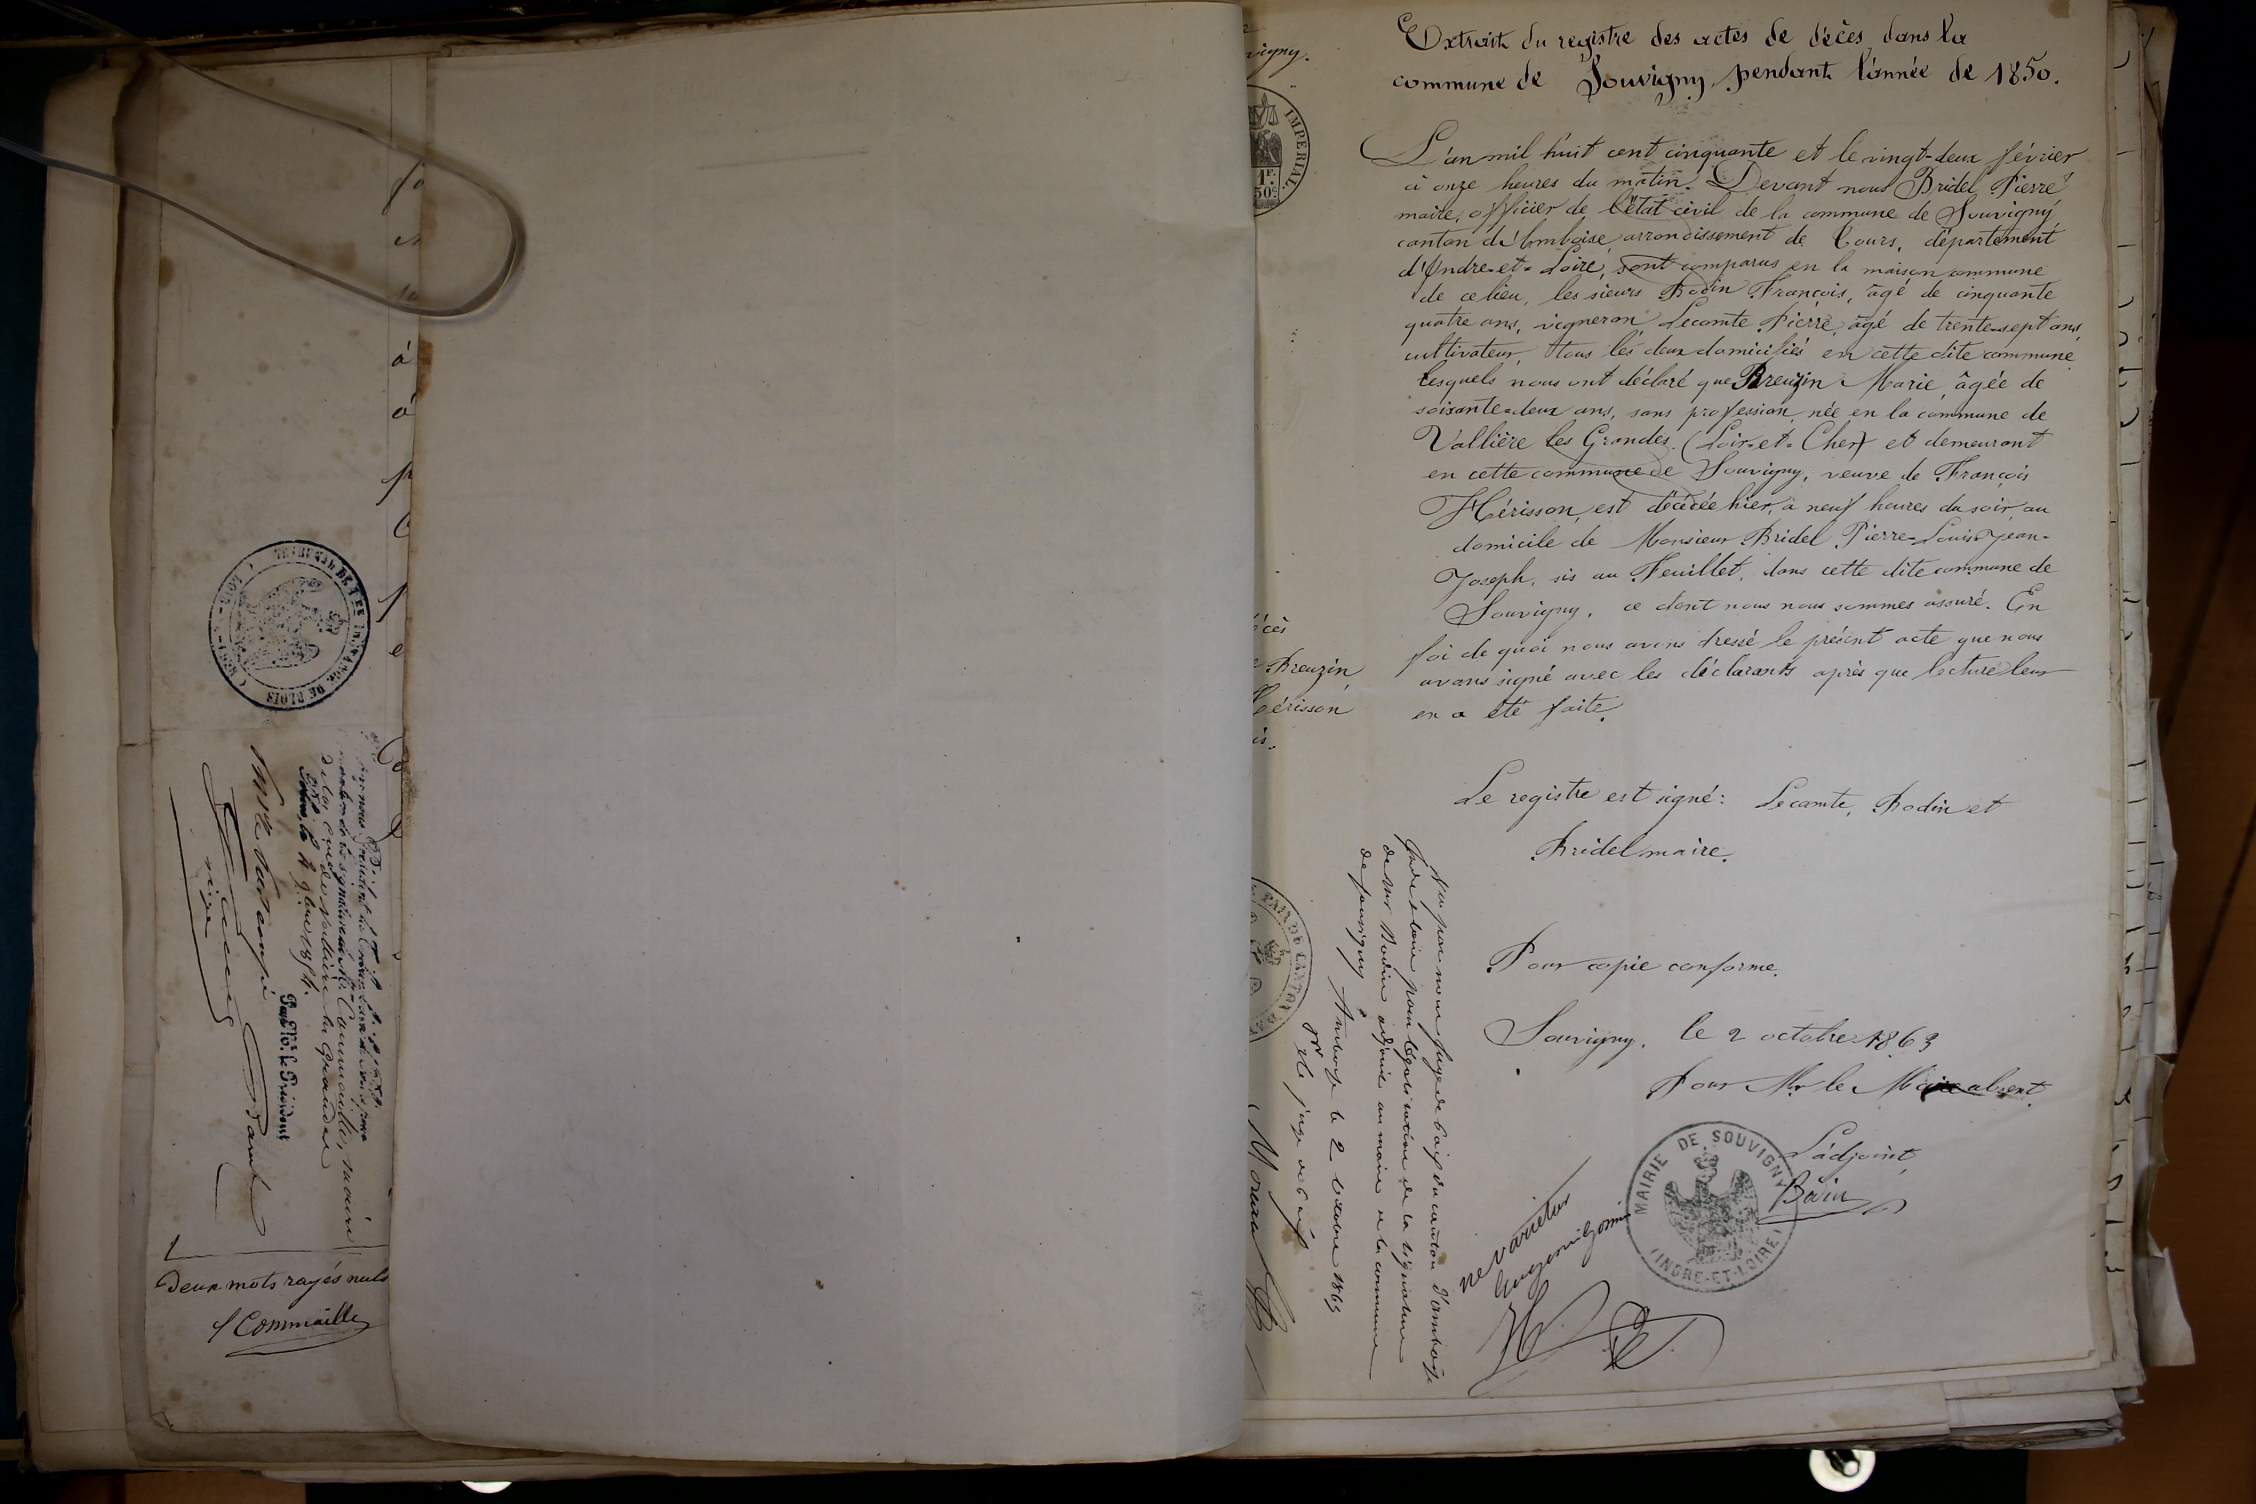 Extrait du registre des actes de décès dans la
commune de Souvigny, pendant l'année de 1850.
L'an mil huit cent cinquante et le vingt-deux février
à onze heures du matin. Devant nous Bridel Pierre
maire, officier de l'état civil de la commune de Souvigny
canton d'Amboise, arrondissement de Tours, département
d'Indre-et-Loire, sont comparus en la maison commune
de ce lieu, les sieurs Bodin François, âgé de cinquante
quatre ans, vigneron, Lecomte Pierre, âgé de trente-sept ans,
cultivateur, tous les deux domiciliés en cette dite commune
lesquels nous ont déclaré que Breuzin Marie, âgée de
soixante-deux ans, sans profession, née en la commune de
Vallière les Grandes (Loir-et-Cher) et demeurant
en cette commune de Souvigny, veuve de François
Hérisson, est décédée hier, à neuf heures du soir, au
domicile de Monsieur Bridel Pierre-Louis-Jean-
Joseph, sis au Feuillet, dans cette dite commune de
Souvigny, ce dont nous nous sommes assuré. En
foi de quoi nous avons dressé le présent acte que nous
avons signé avec les déclarants après que lecture leur
en a été faite.
Le registre est signé: Lecomte, Bodin et
Bridel maire.
Pour copie conforme.
Souvigny, le 2 octobre 1863
Pour Mr le Maire absent.
L'adjoint,
MAIRIE DE SOUVIGNY
(INDRE-ET-LOIRE)
ne varietur
Vu par nous juge de paix du canton d'amboise
Indre & Loire pour légalisation de la signature
de Mr Bodin adjoint au maire de la commune
de Souvigny
Amboise le 2 octobre 1863
Le juge de paix
Moreau
vigny.
IMPERIAL.
1F.
50c.
écès
Breuzin
Hérisson
PAIX DE CANTON
TRIBUNAL DE 1ère INSTANCE DE BLOIS
de la Cne de Vallière les Grandes
Commaille, maire
Le Président
Deux mots rayés nuls
Commaille